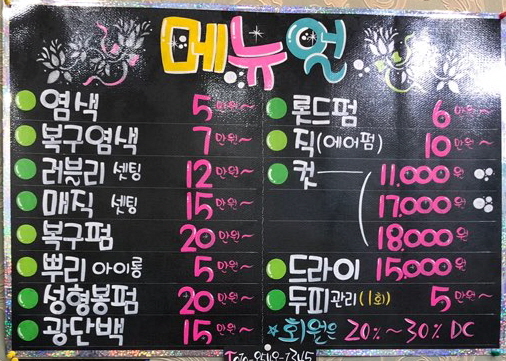 메뉴얼
염색 5만원~
복구염색 7만원~
러블리 셋팅 12만원~
매직 셋팅 15만원~
복구펌 20만원~
뿌리 아이롱 5만원~
성형봉펌 20만원~
광단백 15만원~
론드펌 6만원~
직(에어펌) 10만원~
컷 11,000원
17,000원
18,000원
드라이 15,000원
두피관리(1회) 5만원~
☆회원은 20%~30% DC